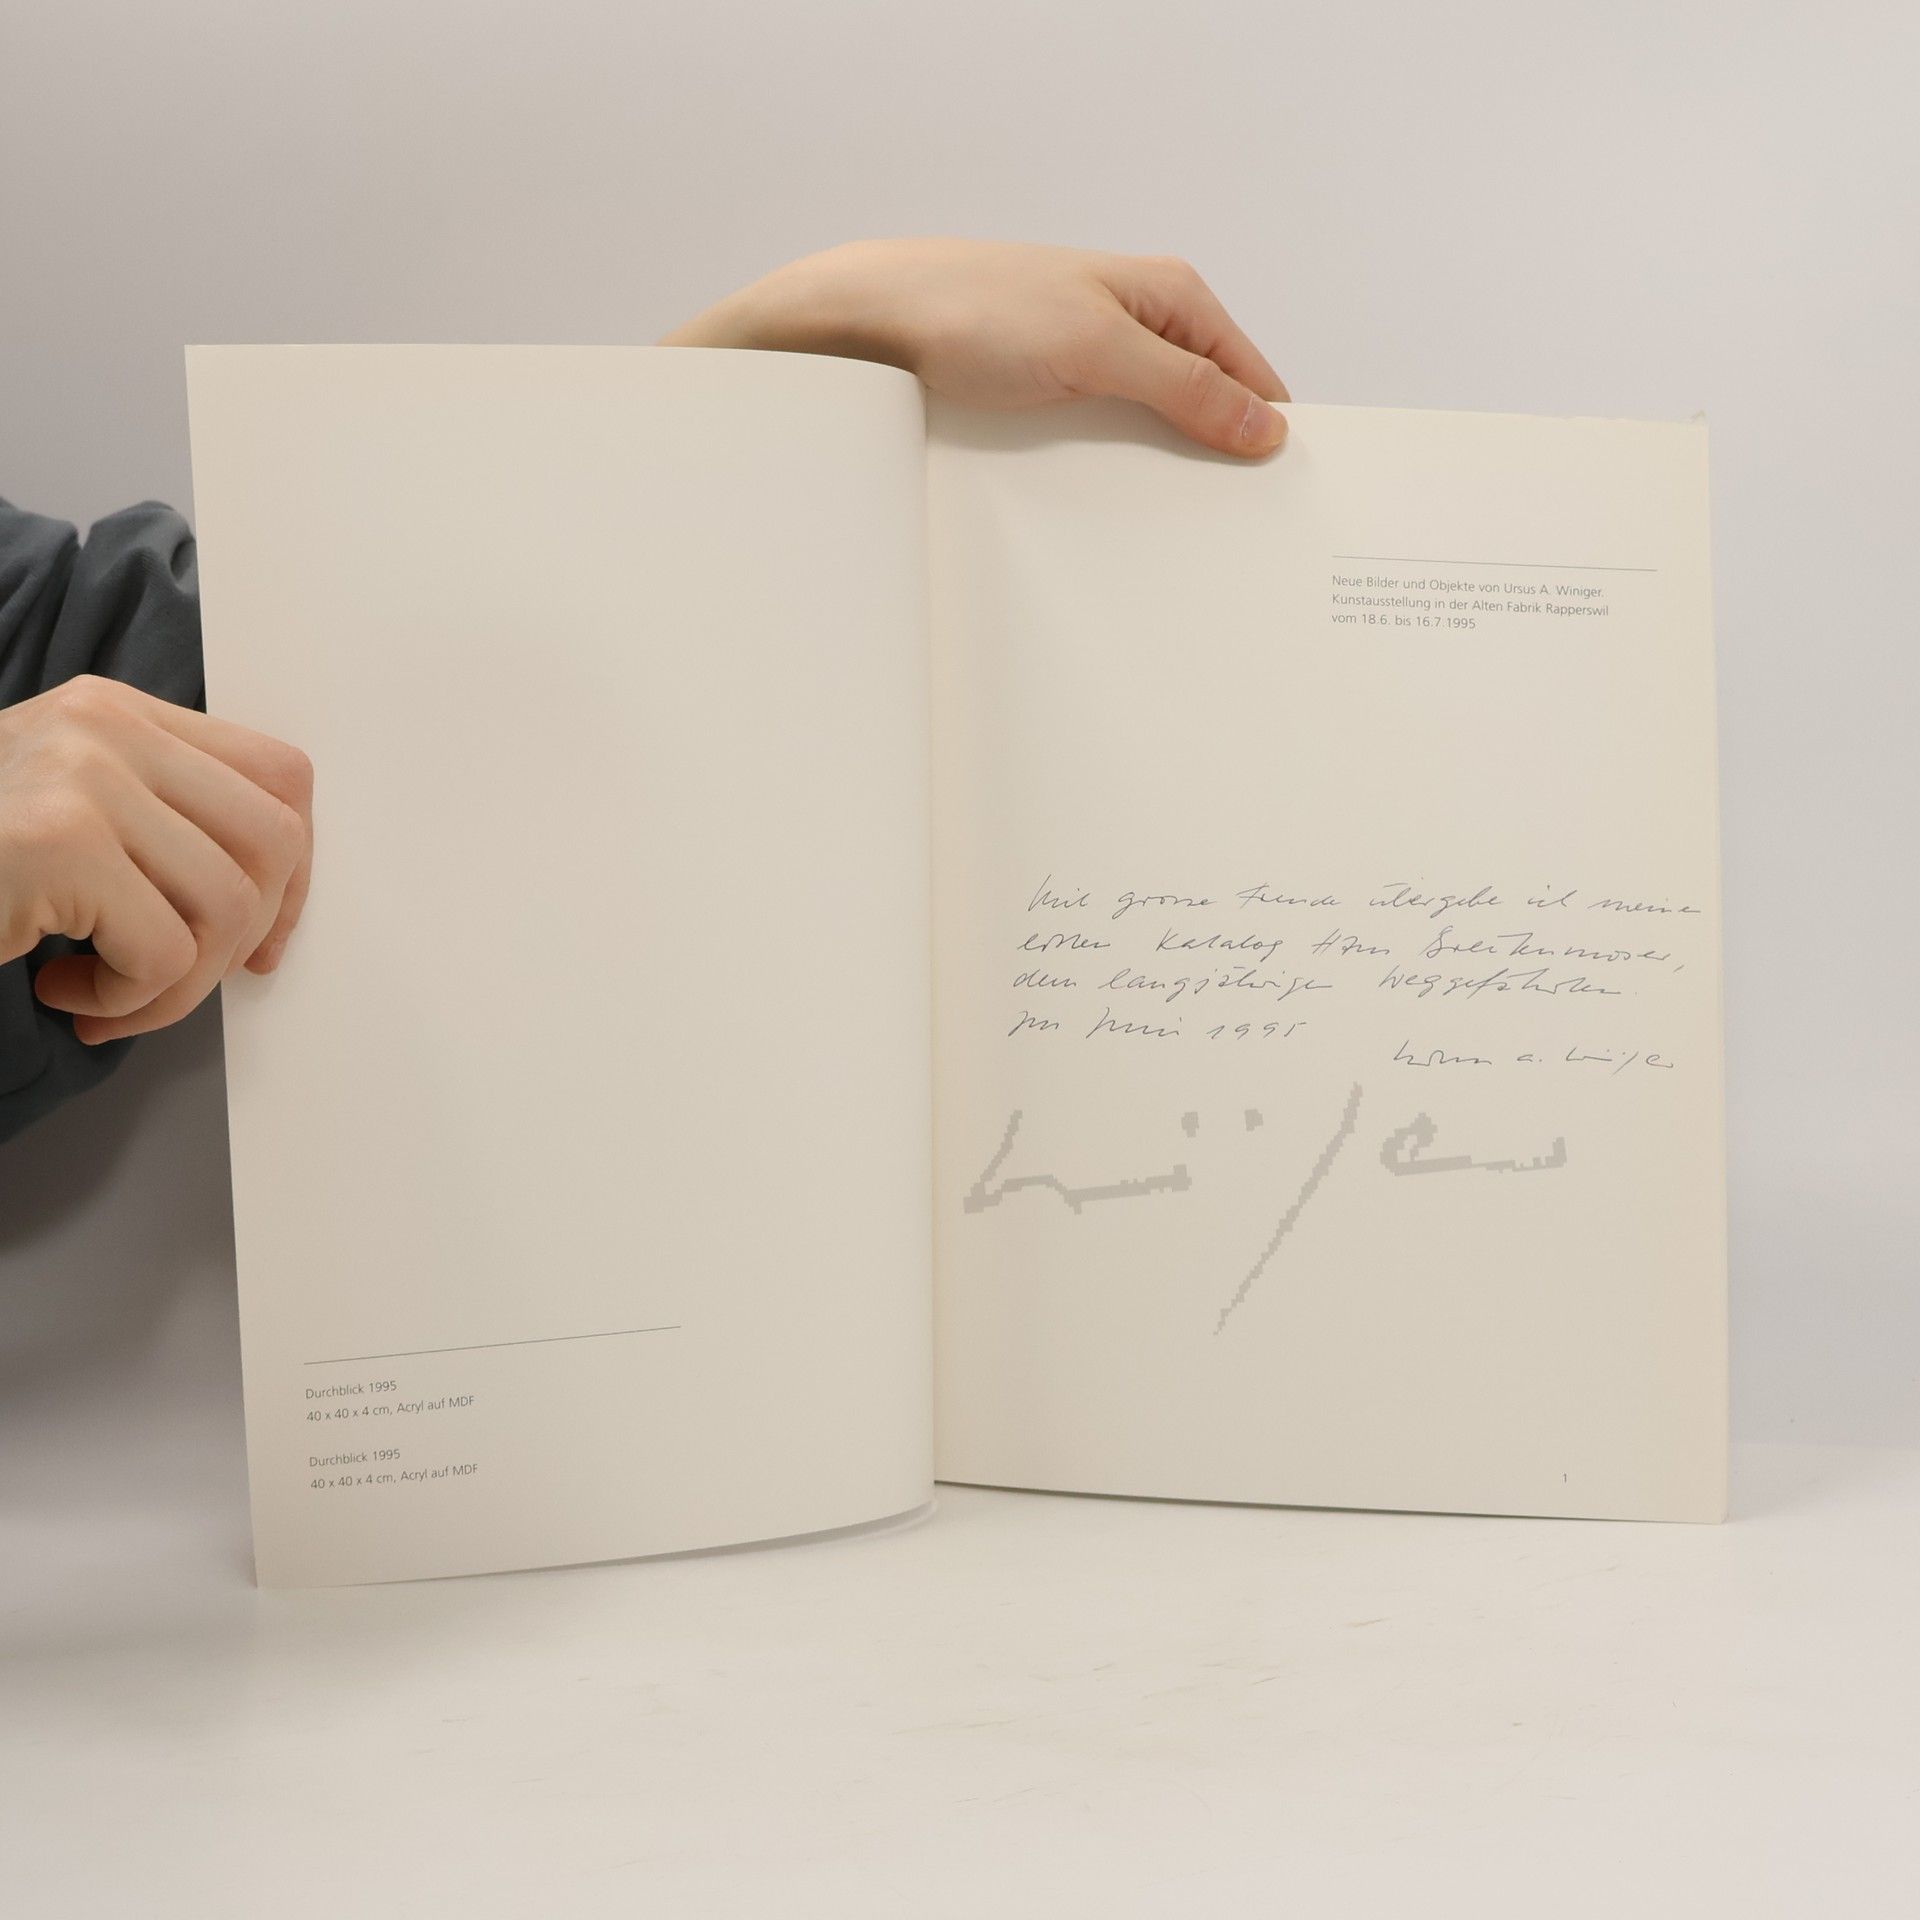 Durchblick 1995
40 x 40 x 4 cm, Acryl auf MDF
Durchblick 1995
40 x 40 x 4 cm, Acryl auf MDF
Neue Bilder und Objekte von Ursus A. Winiger.
Kunstausstellung in der Alten Fabrik Rapperswil
vom 18.6. bis 16.7.1995
Mit grosse Freude übergebe ich meine
ersten Katalog Hans Breitenmoser,
dem langjährigen Weggefährten.
Im Juni 1995
Ursus A. Winiger
Winiger
1